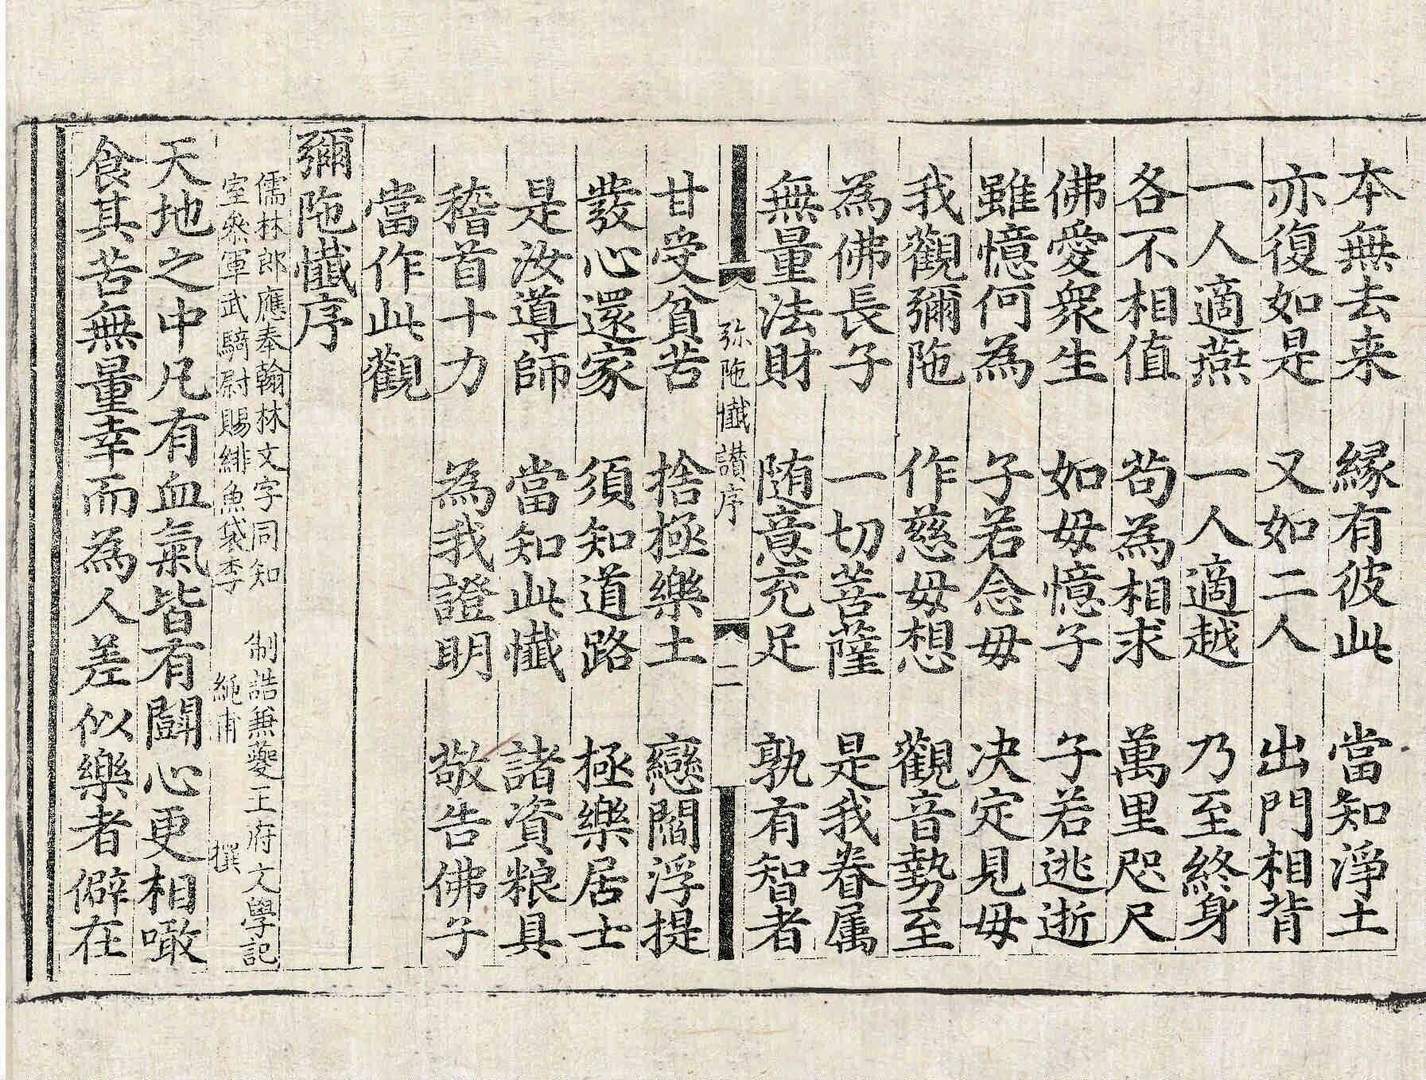 本無去来　緣有彼此　當知淨土
亦復如是　又如二人　出門相背
一人適燕　一人適越　乃至終身
各不相值　苟為相求　萬里咫尺
佛愛衆生　如母憶子　子若逃逝
雖憶何為　子若念母　决定見母
我觀彌陁　作慈母想　觀音勢至
為佛長子　一切菩薩　是我眷属
無量法財　随意充足　孰有智者
弥陁懴讃序　二
甘受貧苦　捨極樂土　戀閻浮提
發心還家　須知道路　極樂居士
是汝導師　當知此懴　諸資粮具
稽首十力　為我證明　敬告佛子
當作此觀
彌陁懴序
儒林郎應奉翰林文字同知　制誥兼夔王府文學記
室叅軍武騎尉賜緋魚袋李　純甫　撰
天地之中凡有血氣皆有鬪心更相噉
食其苦無量幸而為人差似樂者僻在